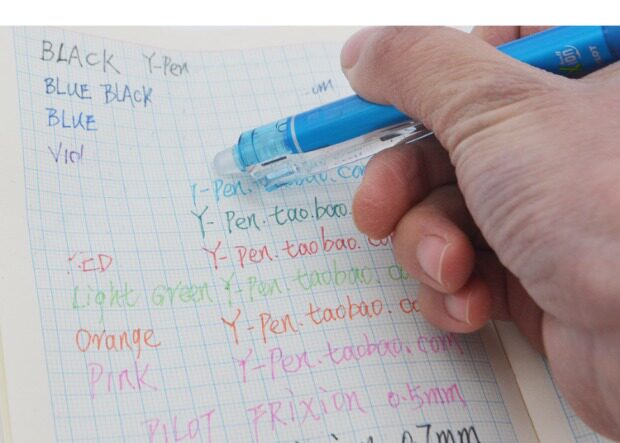 BLACK Y-Pen
BLUE BLACK
BLUE
Viol
om
Y-Pen.taobao.com
Y-Pen.taobao.
RED Y-Pen.taobao.co
Light Green Y-Pen.taobao.co
Orange Y-Pen.taobao.co
Pink Y-Pen.taobao.com
PILOT FRIXION 0.5mm
0.7mm